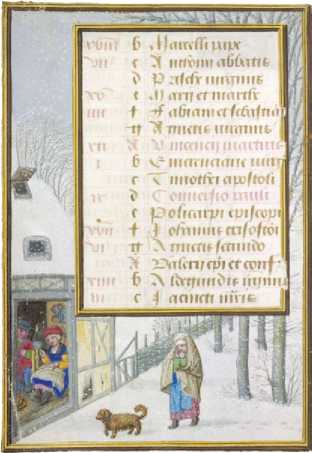 b Marcelli pape
vi c Antonii abbatis
d Prisce virginis
xv e Marii et marthe
iiii f Fabiani et sebastiani
g Agnetis virginis
xii A Vincencii martiris
i b Emerenciane virg
c Timothei apostoli
d Conversio pauli
e Policarpi episcopi
xvii f Johannis crisostomi
vi g Agnetis secundo
A Valerii epi et conf
b Aldegundis virginis
iii c